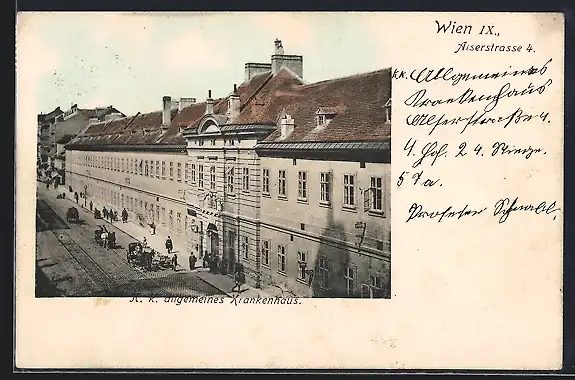 Wien IX.,
Alserstrasse 4.
k.k. Allgemeines
Krankenhaus
Alserstraße 4.
4. Hof. 24. Stiege.
57a.
Professor Schnabl,
K. k. allgemeines Krankenhaus.